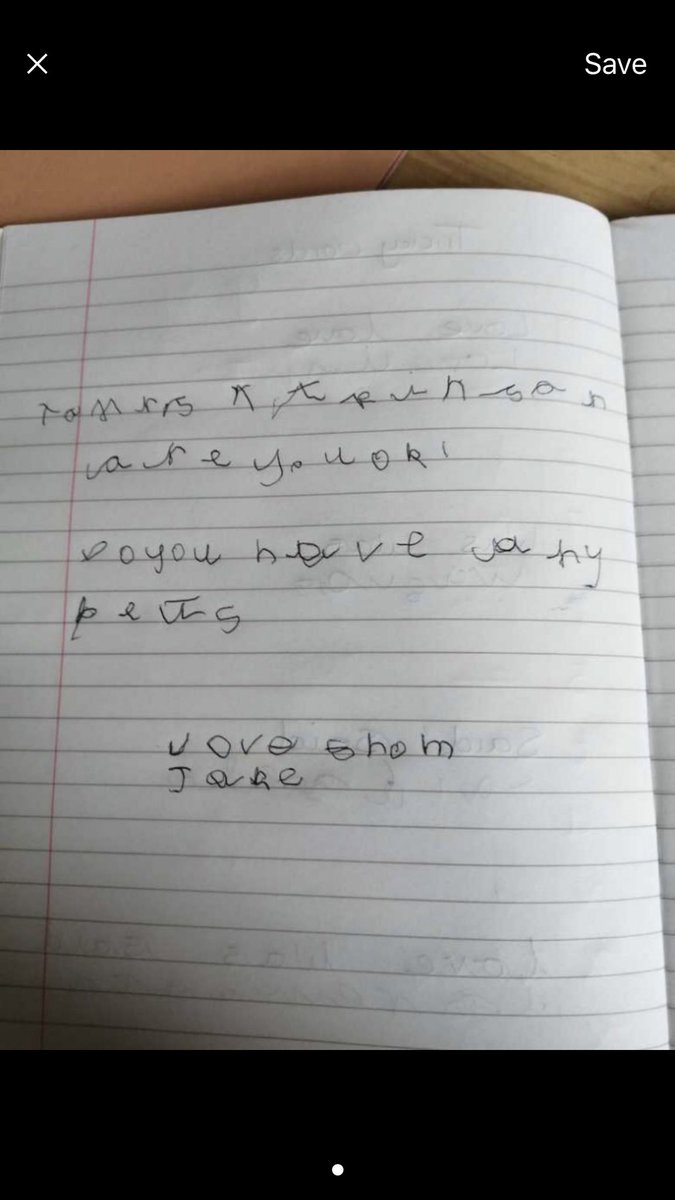 Save
To Mrs Atkinson
are you ok
do you have any
pets
love from
Jake